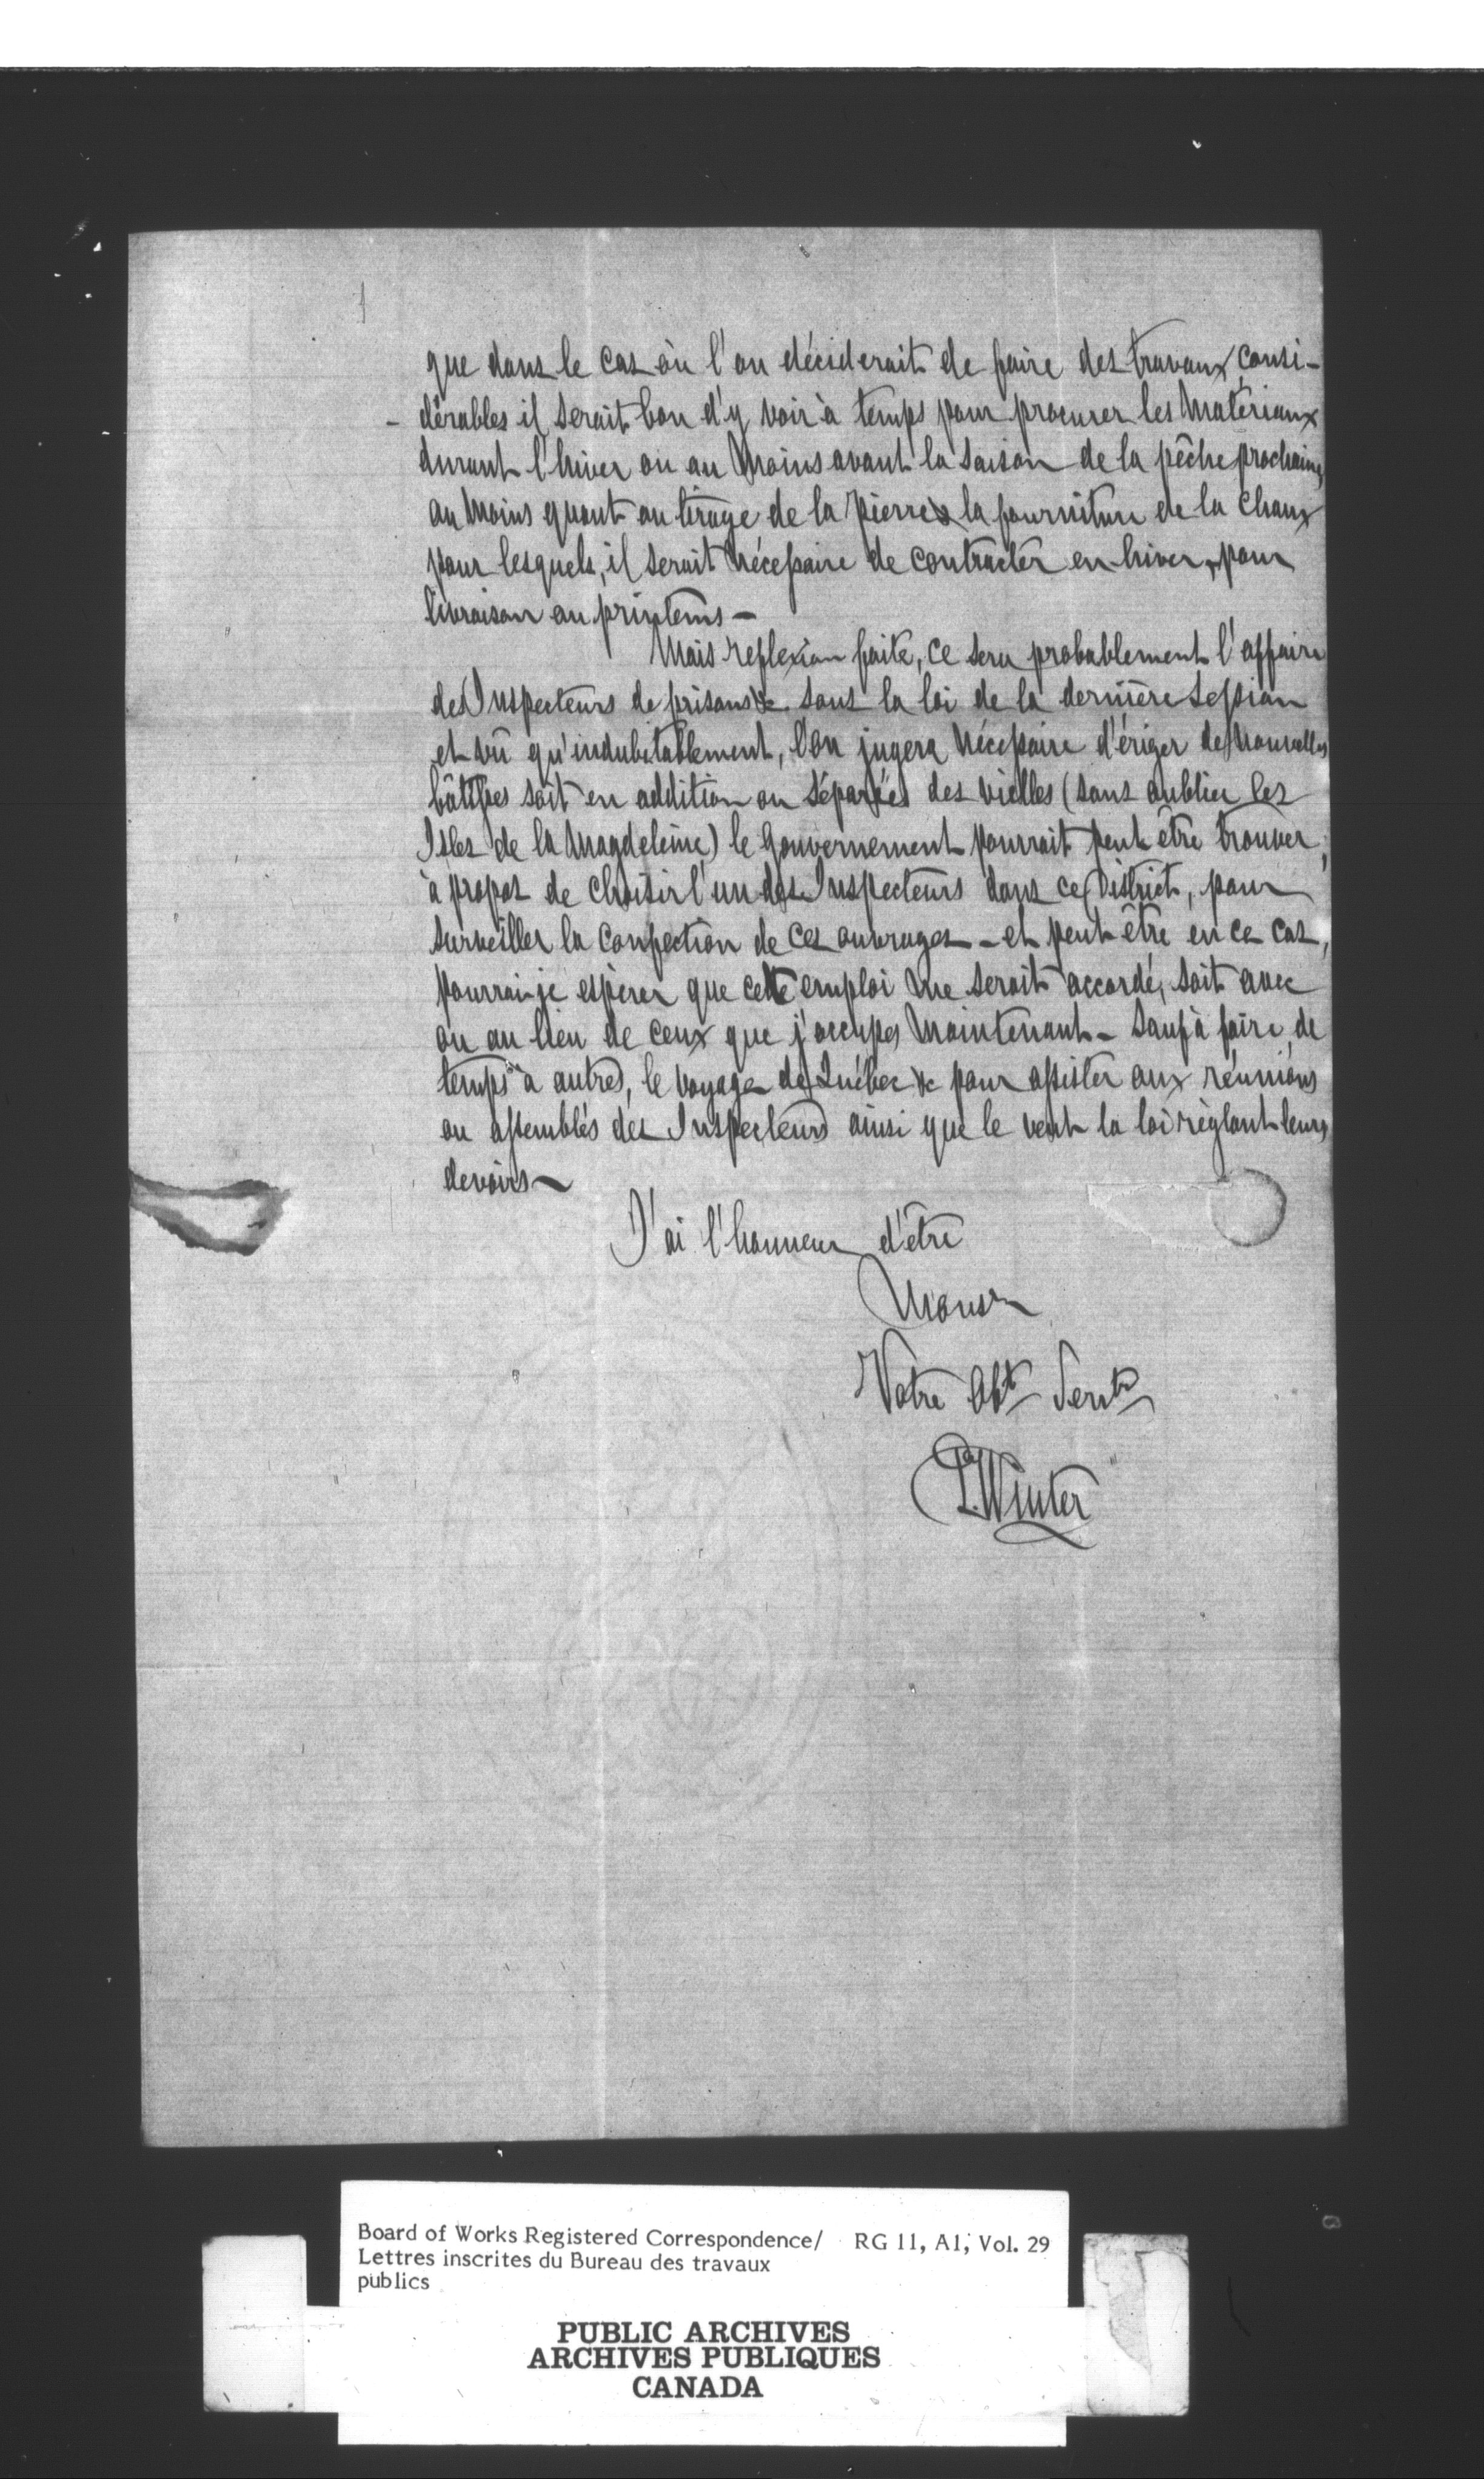 que dans le cas où l'on déciderait de faire des travaux consi-
-dérables il serait bon d'y voir à temps pour procurer les matériaux
durant l'hiver ou au moins avant la saison de la pêche prochaine,
au moins quant au tirage de la pierre & la fourniture de la chaux
pour lesquels, il serait nécessaire de contracter en hiver, pour
livraison au printems —
Mais reflexion faite, ce sera probablement l'affaire
des Inspecteurs de prisons &c. sous la loi de la dernière session
et vû qu'indubitablement, l'on jugera nécessaire d'ériger de nouvelles
bâtisses soit en addition ou séparées des vielles (sans oublier les
Isles de la Magdeleine) le Gouvernement pourrait peut être trouver
à propos de choisir l'un des Inspecteurs dans ce District, pour
surveiller la confection de ces ouvrages - et peut être en ce cas,
pourrai-je espérer que cette emploi me serait accordé, soit avec
ou au lieu de ceux que j'occupes maintenant - sauf à faire, de
temps à autres, le voyage de Québec &c pour assister aux réunions
ou assemblés des Inspecteurs ainsi que le veut la loi règlant leurs
devoirs —
J'ai l'honneur d'être
Monsr
Votre Obt Servt
P. Winter
Board of Works Registered Correspondence/ RG 11, A1, Vol. 29
Lettres inscrites du Bureau des travaux
publics
PUBLIC ARCHIVES
ARCHIVES PUBLIQUES
CANADA